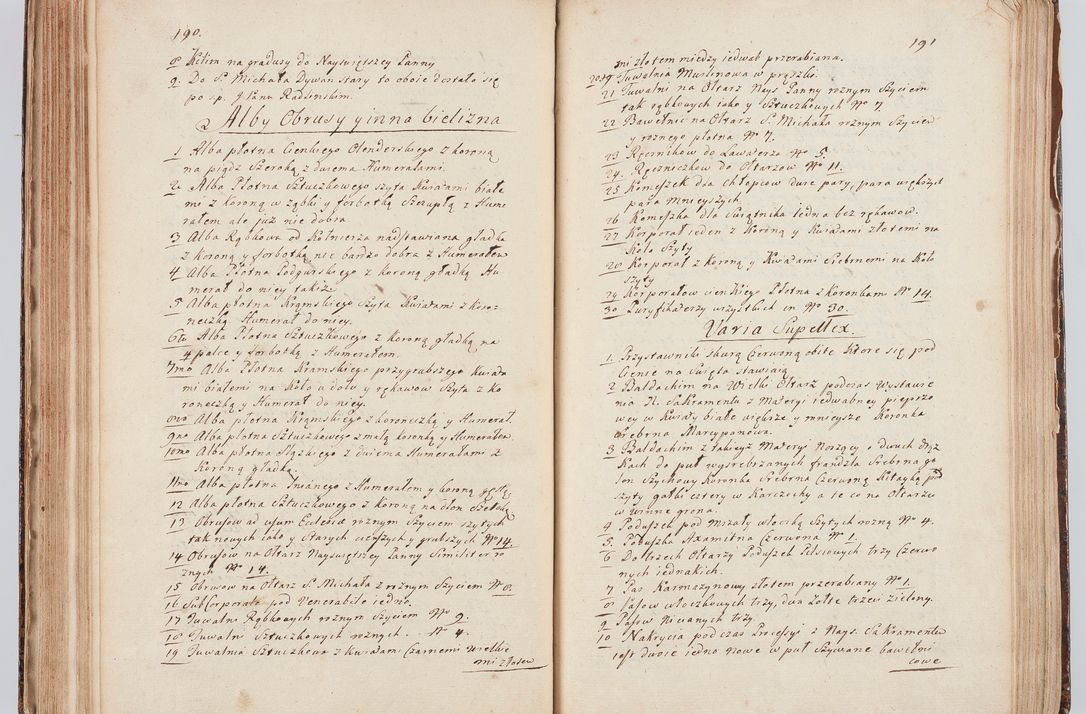 190.
8 Kilim na gradusy do Nayswiętszey Panny
9. Do S. Michała Dywan stary to oboie dostało się
po sp. J. Panu Radzenskim.
Alby Obrusy y inna bielizna
1 Alba płotna Cienkiego Olenderskiego z koroną
na piądz Szeroką z dwiema Humerałami.
2 Alba Płotna Sztuczkowego szyta Kwiatami białe
mi z koroną w ząbki y forbotką Szczupłą z Hume
rałem ale już nie dobra.
3 Alba Rąbkowa od Kołnierza nadstawiana gładka
z koroną y forbotką nie bardzo dobra z Humerałem
4 Alba Płotna Podgurskiego z koroną gładką Hu
merał do niey takiż
5 Alba płotna Kramskiego Szyta Kwiatami z koro=
neczką. Humerał do niey.
6ta Alba Płotna Sztuczkowego z koroną gładką na
4 palce y forbotką z Humerałem.
7mo Alba Płotna Kramskiego przygrubszego kwiata
mi białemi na Koło u dołu y rękawow Szyta z ko
roneczką y Humerał do niey.
8vo Alba płotna Kramskiego z koroneczką y Humerał.
9no Alba płotna Sztuczkowego z małą koronką y Humerałem.
10mo Alba płotna Sląskiego z dwiema Humerałami z
Koroną gładką.
11mo Alba płotna Inianego z Humerałem y koroną gęstą
12 Alba płotna Sztuczkowego z koroną na dłoń Szeroką
13 Obrusow ad usum Ecclesiæ roznym Szyciem szytych
tak nowych iako y Starych cienszych y grubszych No 14.
14 Obrusow na Ołtarz Nayswiętszey Panny Similiter ro
znych No 14.
15 Obrusow na Ołtarz S. Michała z roznym Szyciem No 8.
16 SubCorporale pod Venerabile iedno.
17 Tuwalni Rąbkowych roznym Szyciem No 9.
18 Tuwalni Sztuczkowych roznych. No 4.
19 Tuwalnia Sztuczkowa z kwiatami Czarnemi wielkie
mi złotem
191
mi złotem między iedwab przerabiana.
20 Tuwalnia Muslinowa w prążki.
21 Tuwalni na Ołtarz Nays. Panny roznym Szyciem
tak rąbkowych iako y Sztuczkowych No 7.
22 Bawełnic na Ołtarz S. Michała roznym Szyciem
y roznego płotna No 7.
23 Ręcznikow do Lawaterza No 5.
24. Ręczniczkow do Ołtarzow No 11.
25 Komeszek dla Chłopcow dwie pary, para większych
para Mnieyszych.
26 Komeszka dla Swiątnika iedna bez rękawow.
27 Korporał ieden z Koroną y Kwiatami złotemi na
Koło Szyty
28 Korporał z koroną y Kwiatami Srebrnemi na Koło
szyty
29 Korporałow cienkiego Płotna z koronkami No 14.
30 Puryfikaterzy wszystkich in No 30.
Varia Supellex.
1. Przystawniki skurą Czerwoną obite Ktore się pod
Cienie na Swięto stawiaią
2 Baldachim na Wielki Ołtarz podczas Wystawie
nia N. Sakramentu z Materyi iedwabney pieprzo
wey w Kwiaty białe większe y mnieysze Koronka
Srebrna Marcypanowa.
3 Baldachim z takieyż Materyi Noszący o dwuch drąż
kach do puł wysrebrzanych frandzla Srebrna ga
lon Szychowy Koronka Srebrna Czerwoną Kitayką pod
szyty gałki cztery w Karczochy a te co na Ołtarzu
w Winne grona.
4 Poduszek pod Mszały włoczką Szytych rozną No 4.
5. Poduszka Axamitna Czerwona No 1.
6 Do Trzech Ołtarzy Poduszek Pilsiowych trzy Czerwo
nych iednakich.
7 Pas Karmazynowy złotem przerabiany No 1.
8 Pasow włoczkowych trzy, dwa żołte trzeci zielony.
9 Pasow Nicianych trzy.
10 Nakrycia pod czas Processyi z Nays. Sakramentu
dwoie iedno nowe w puł Szywane bawełni
cowe